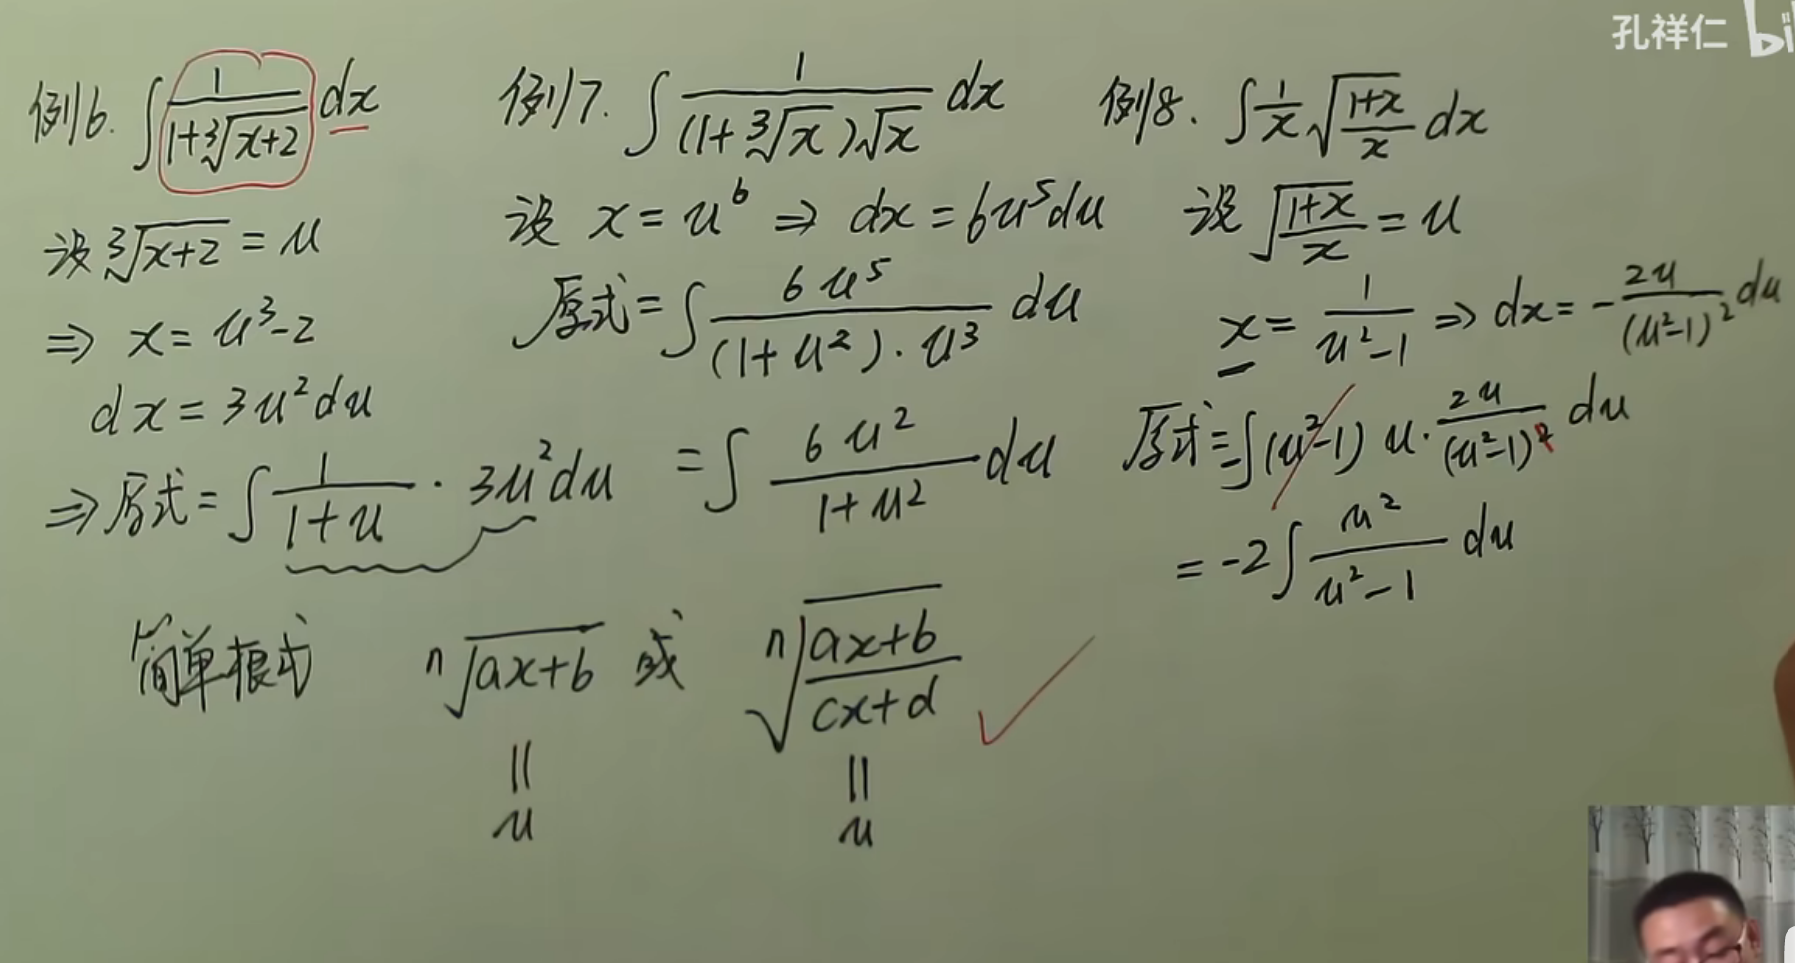 孔祥仁 bi
例6. ∫ 1/(1+∛(x+2)) dx
设 ∛(x+2) = u
⇒ x = u³-2
dx = 3u²du
⇒ 原式 = ∫ 1/(1+u) · 3u²du
例7. ∫ 1/((1+∛x)√x) dx
设 x = u⁶ ⇒ dx = 6u⁵du
原式 = ∫ 6u⁵/((1+u²)·u³) du
= ∫ 6u²/(1+u²) du
例8. ∫ 1/x √((1+x)/x) dx
设 √((1+x)/x) = u
x = 1/(u²-1) ⇒ dx = -2u/(u²-1)² du
原式 = -∫ (u²-1) u · 2u/(u²-1)² du
= -2∫ u²/(u²-1) du
简单根式 ⁿ√(ax+b) 或 ⁿ√((ax+b)/(cx+d)) ✓
|| ||
u u